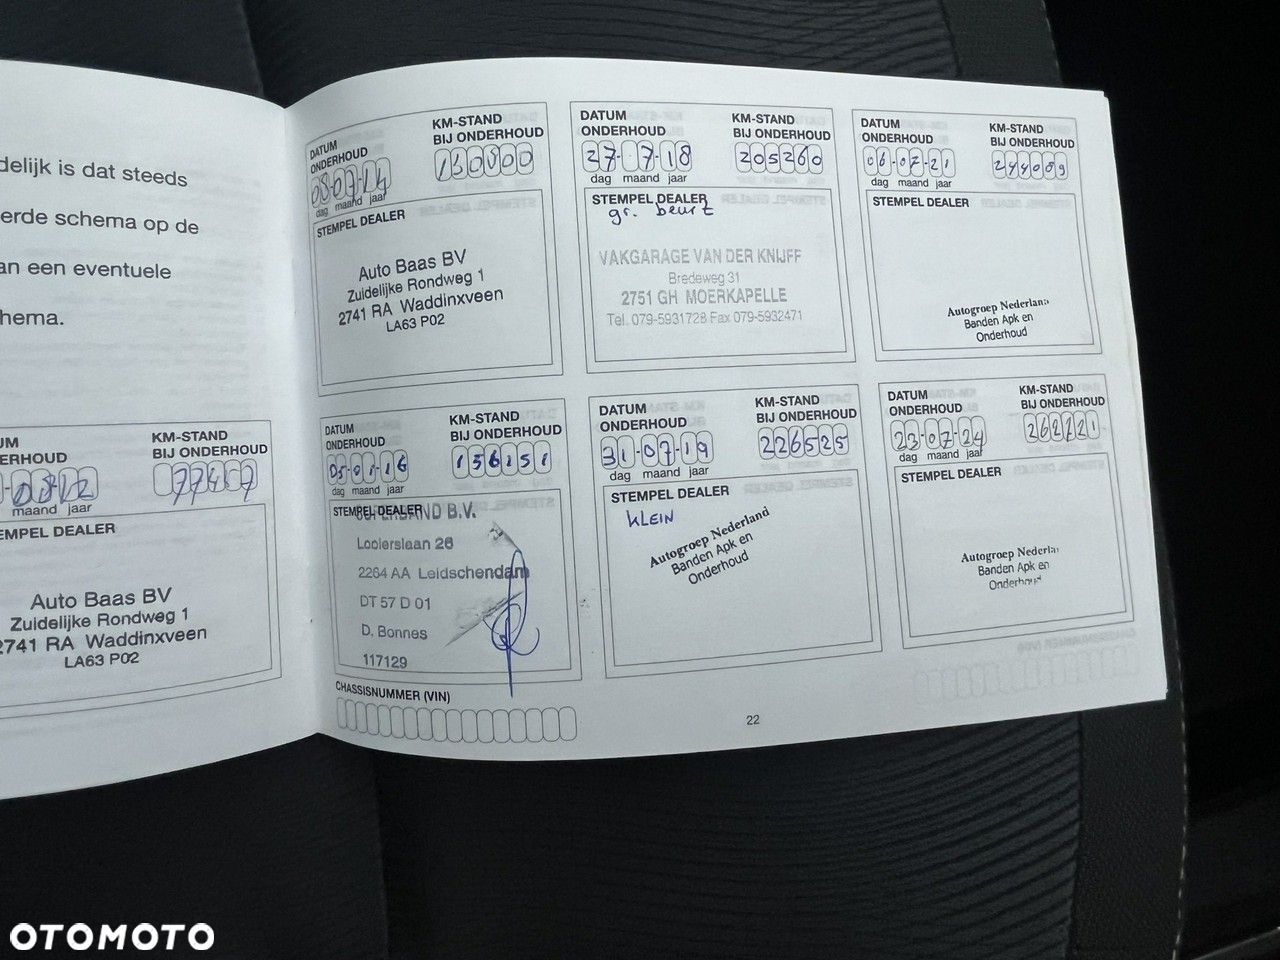 delijk is dat steeds
erde schema op de
an een eventuele
hema.
UM
ERHOUD
KM-STAND
BIJ ONDERHOUD
maand jaar
EMPEL DEALER
Auto Baas BV
Zuidelijke Rondweg 1
2741 RA Waddinxveen
LA63 P02
DATUM
ONDERHOUD
KM-STAND
BIJ ONDERHOUD
08-07-14
130800
dag maand jaar
STEMPEL DEALER
Auto Baas BV
Zuidelijke Rondweg 1
2741 RA Waddinxveen
LA63 P02
DATUM
ONDERHOUD
KM-STAND
BIJ ONDERHOUD
27-7-18
205260
dag maand jaar
STEMPEL DEALER
gr. beurt
VAKGARAGE VAN DER KNIJFF
Bredeweg 31
2751 GH MOERKAPELLE
Tel. 079-5931728 Fax 079-5932471
DATUM
ONDERHOUD
KM-STAND
BIJ ONDERHOUD
06-07-21
244089
dag maand jaar
STEMPEL DEALER
Autogroep Nederland
Banden Apk en
Onderhoud
DATUM
ONDERHOUD
KM-STAND
BIJ ONDERHOUD
05-01-16
156151
dag maand jaar
STEMPEL DEALER
B.V.
Looierslaan 26
2264 AA Leidschendam
DT 57 D 01
D. Bonnes
117129
DATUM
ONDERHOUD
KM-STAND
BIJ ONDERHOUD
31-07-19
226525
dag maand jaar
STEMPEL DEALER
KLEIN
Autogroep Nederland
Banden Apk en
Onderhoud
DATUM
ONDERHOUD
KM-STAND
BIJ ONDERHOUD
23-07-24
262221
dag maand jaar
STEMPEL DEALER
Autogroep Nederlan
Banden Apk en
Onderhoud
CHASSISNUMMER (VIN)
22
OTOMOTO